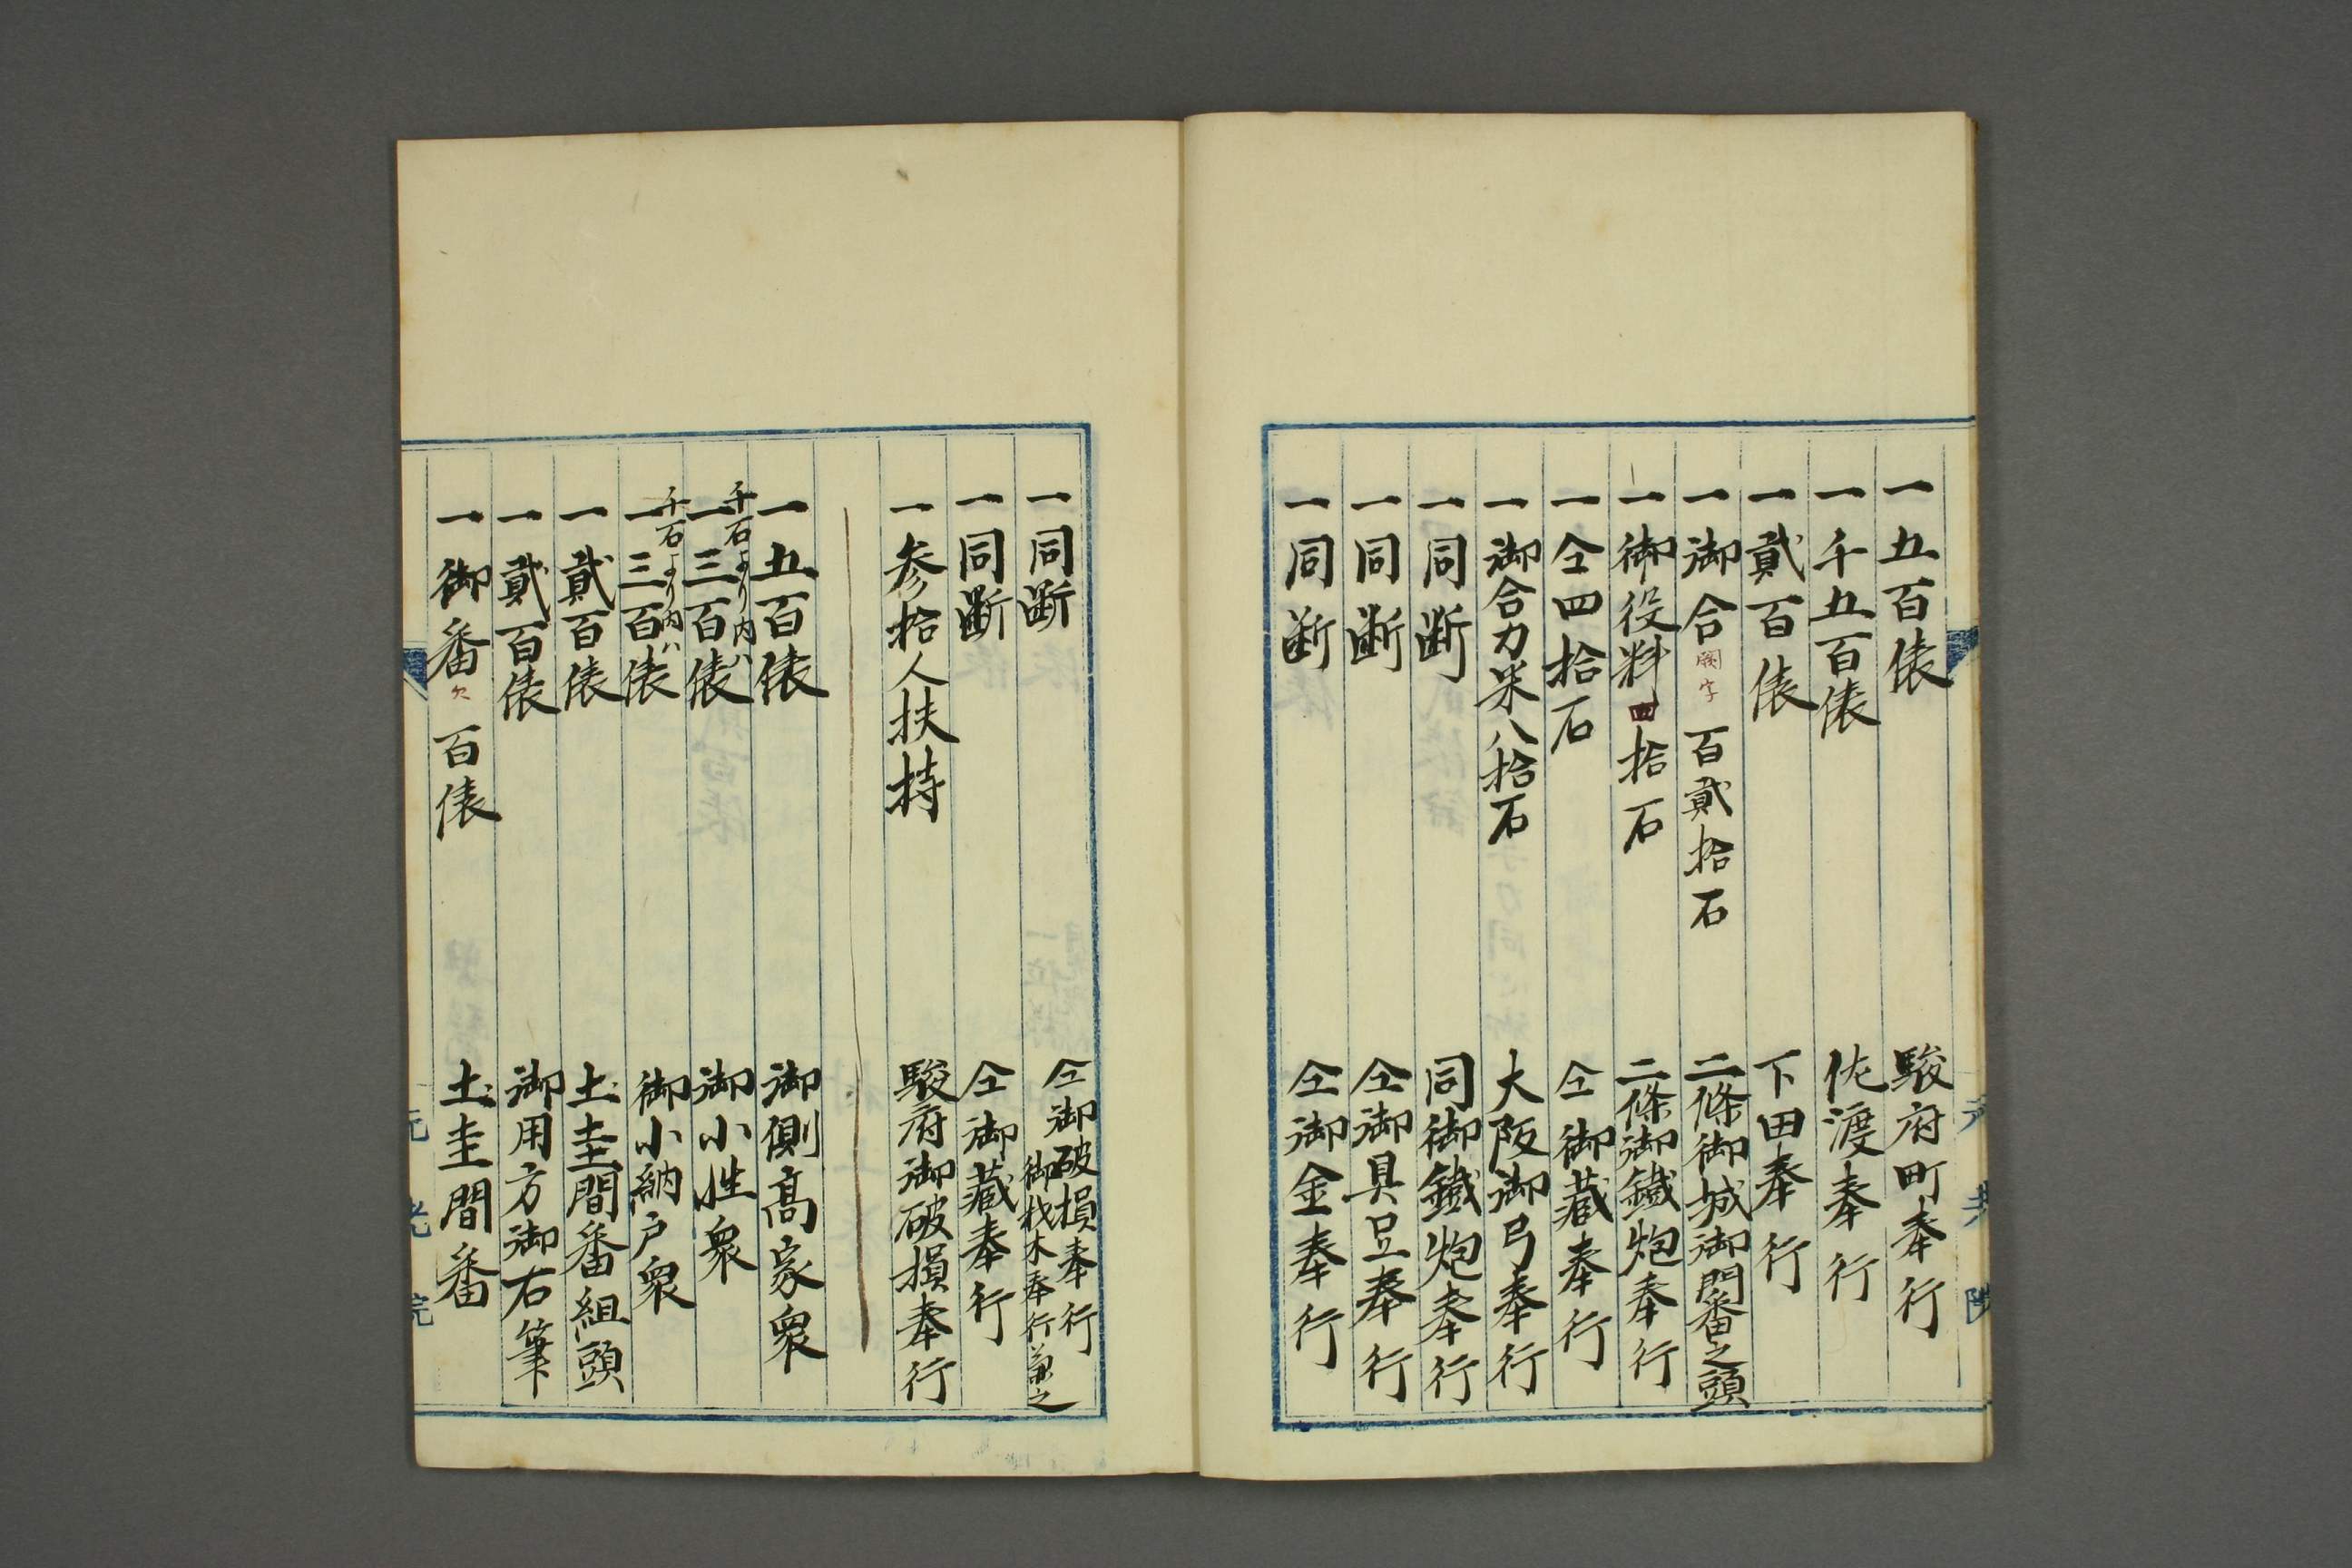 一五百俵　駿府町奉行
一千五百俵　佐渡奉行
一貳百俵　下田奉行
一御合闕字百貳拾石　二條御城御門番之頭
一御役料四拾石　二條御鐵炮奉行
一仝四拾石　仝御藏奉行
一御合力米八拾石　大阪御弓奉行
一同断　同御鐵炮奉行
一同断　仝御具足奉行
一同断　仝御金奉行
一同断　仝御破損奉行
御材木奉行兼之
一同断　仝御藏奉行
一参拾人扶持　駿府御破損奉行
一五百俵　御側高家衆
千石より内ハ
一三百俵　御小性衆
千石より内ハ
一三百俵　御小納戸衆
一貳百俵　土圭間番組頭
一貳百俵　御用方御右筆
一御番欠百俵　土圭間番
元老院